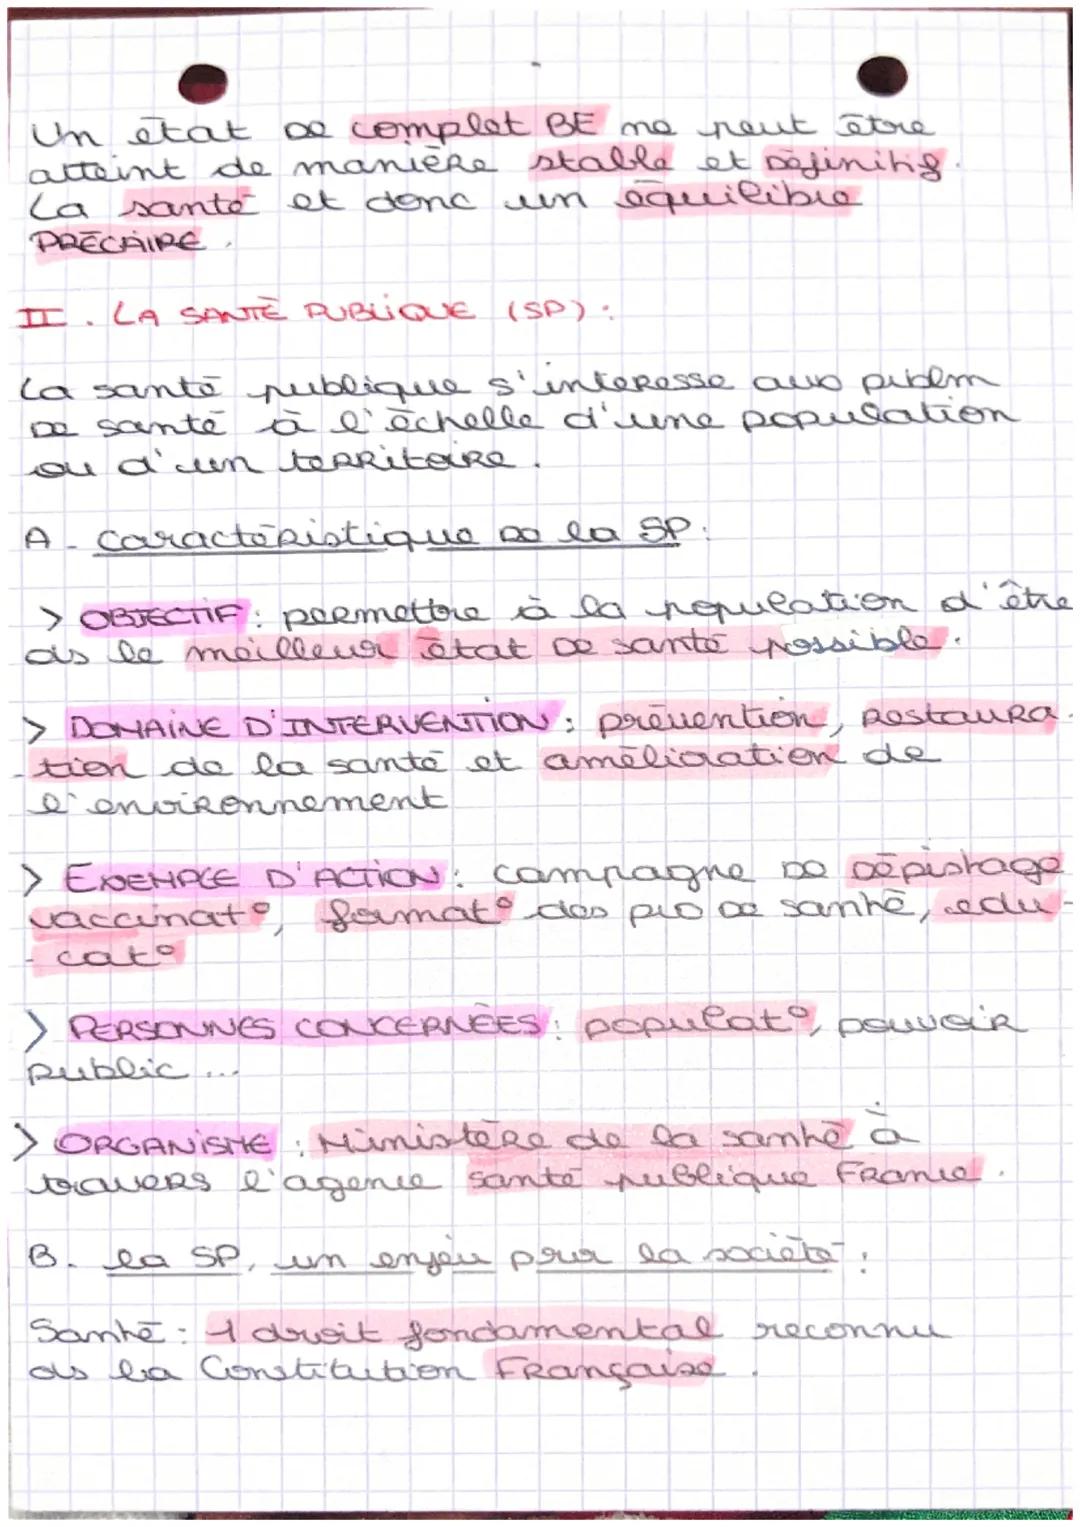 Un état de complet BE ne peut être
atteint de manière stable et définitif.
La santé et donc un équilibre
PRÉCAIRE.
II. LA SANTÉ PUBLIQUE (SP) :
La santé publique s'interesse aux publem
de santé à l'échelle d'une population
ou d'un territoire.
A - Caractéristique de la SP:
> OBJECTIF : permettre à la population d'être
ds le meilleur état de santé possible.
> DOMAINE D'INTERVENTION : prévention, restaura-
-tion de la santé et amélioration de
l'environnement
> EXEMPLE D'ACTION : campagne de dépistage
vaccinat°, format° des pro de santé, edu-
-cat°
> PERSONNES CONCERNÉES : populat°, pouvoir
public ...
> ORGANISME : Ministère de la santé à
travers l'agence santé publique France.
B. la SP, un enjeu pour la société :
Santé : 1 droit fondamental reconnu
ds la Constitution Française.